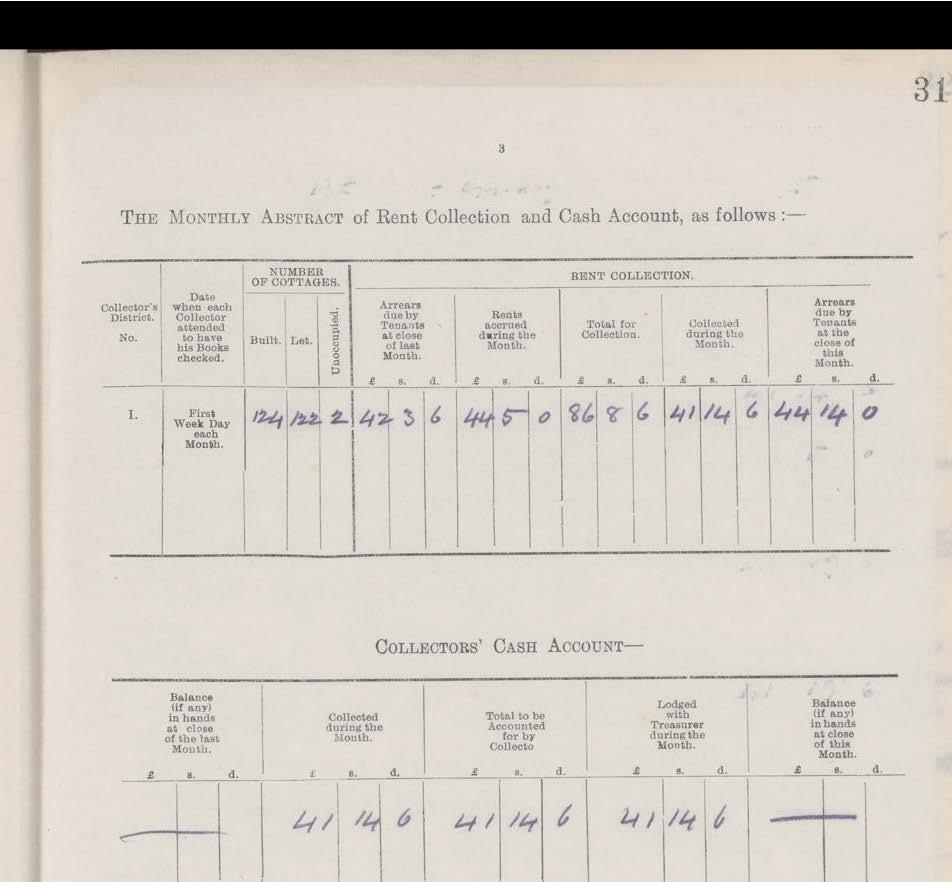 31
3
THE MONTHLY ABSTRACT of Rent Collection and Cash Account, as follows :—
Collector's District. No.
Date when each Collector attended to have his Books checked.
NUMBER OF COTTAGES.
Built. Let. Unoccupied.
RENT COLLECTION.
Arrears due by Tenants at close of last Month.
Rents accrued during the Month.
Total for Collection.
Collected during the Month.
Arrears due by Tenants at the close of this Month.
£ s. d. £ s. d. £ s. d. £ s. d. £ s. d.
I. First Week Day each Month. 124 122 2 42 3 6 44 5 0 86 8 6 41 14 6 44 14 0
COLLECTORS' CASH ACCOUNT—
Balance (if any) in hands at close of the last Month.
Collected during the Month.
Total to be Accounted for by Collecto
Lodged with Treasurer during the Month.
Balance (if any) in hands at close of this Month.
£ s. d. £ s. d. £ s. d. £ s. d. £ s. d.
— 41 14 6 41 14 6 41 14 6 —